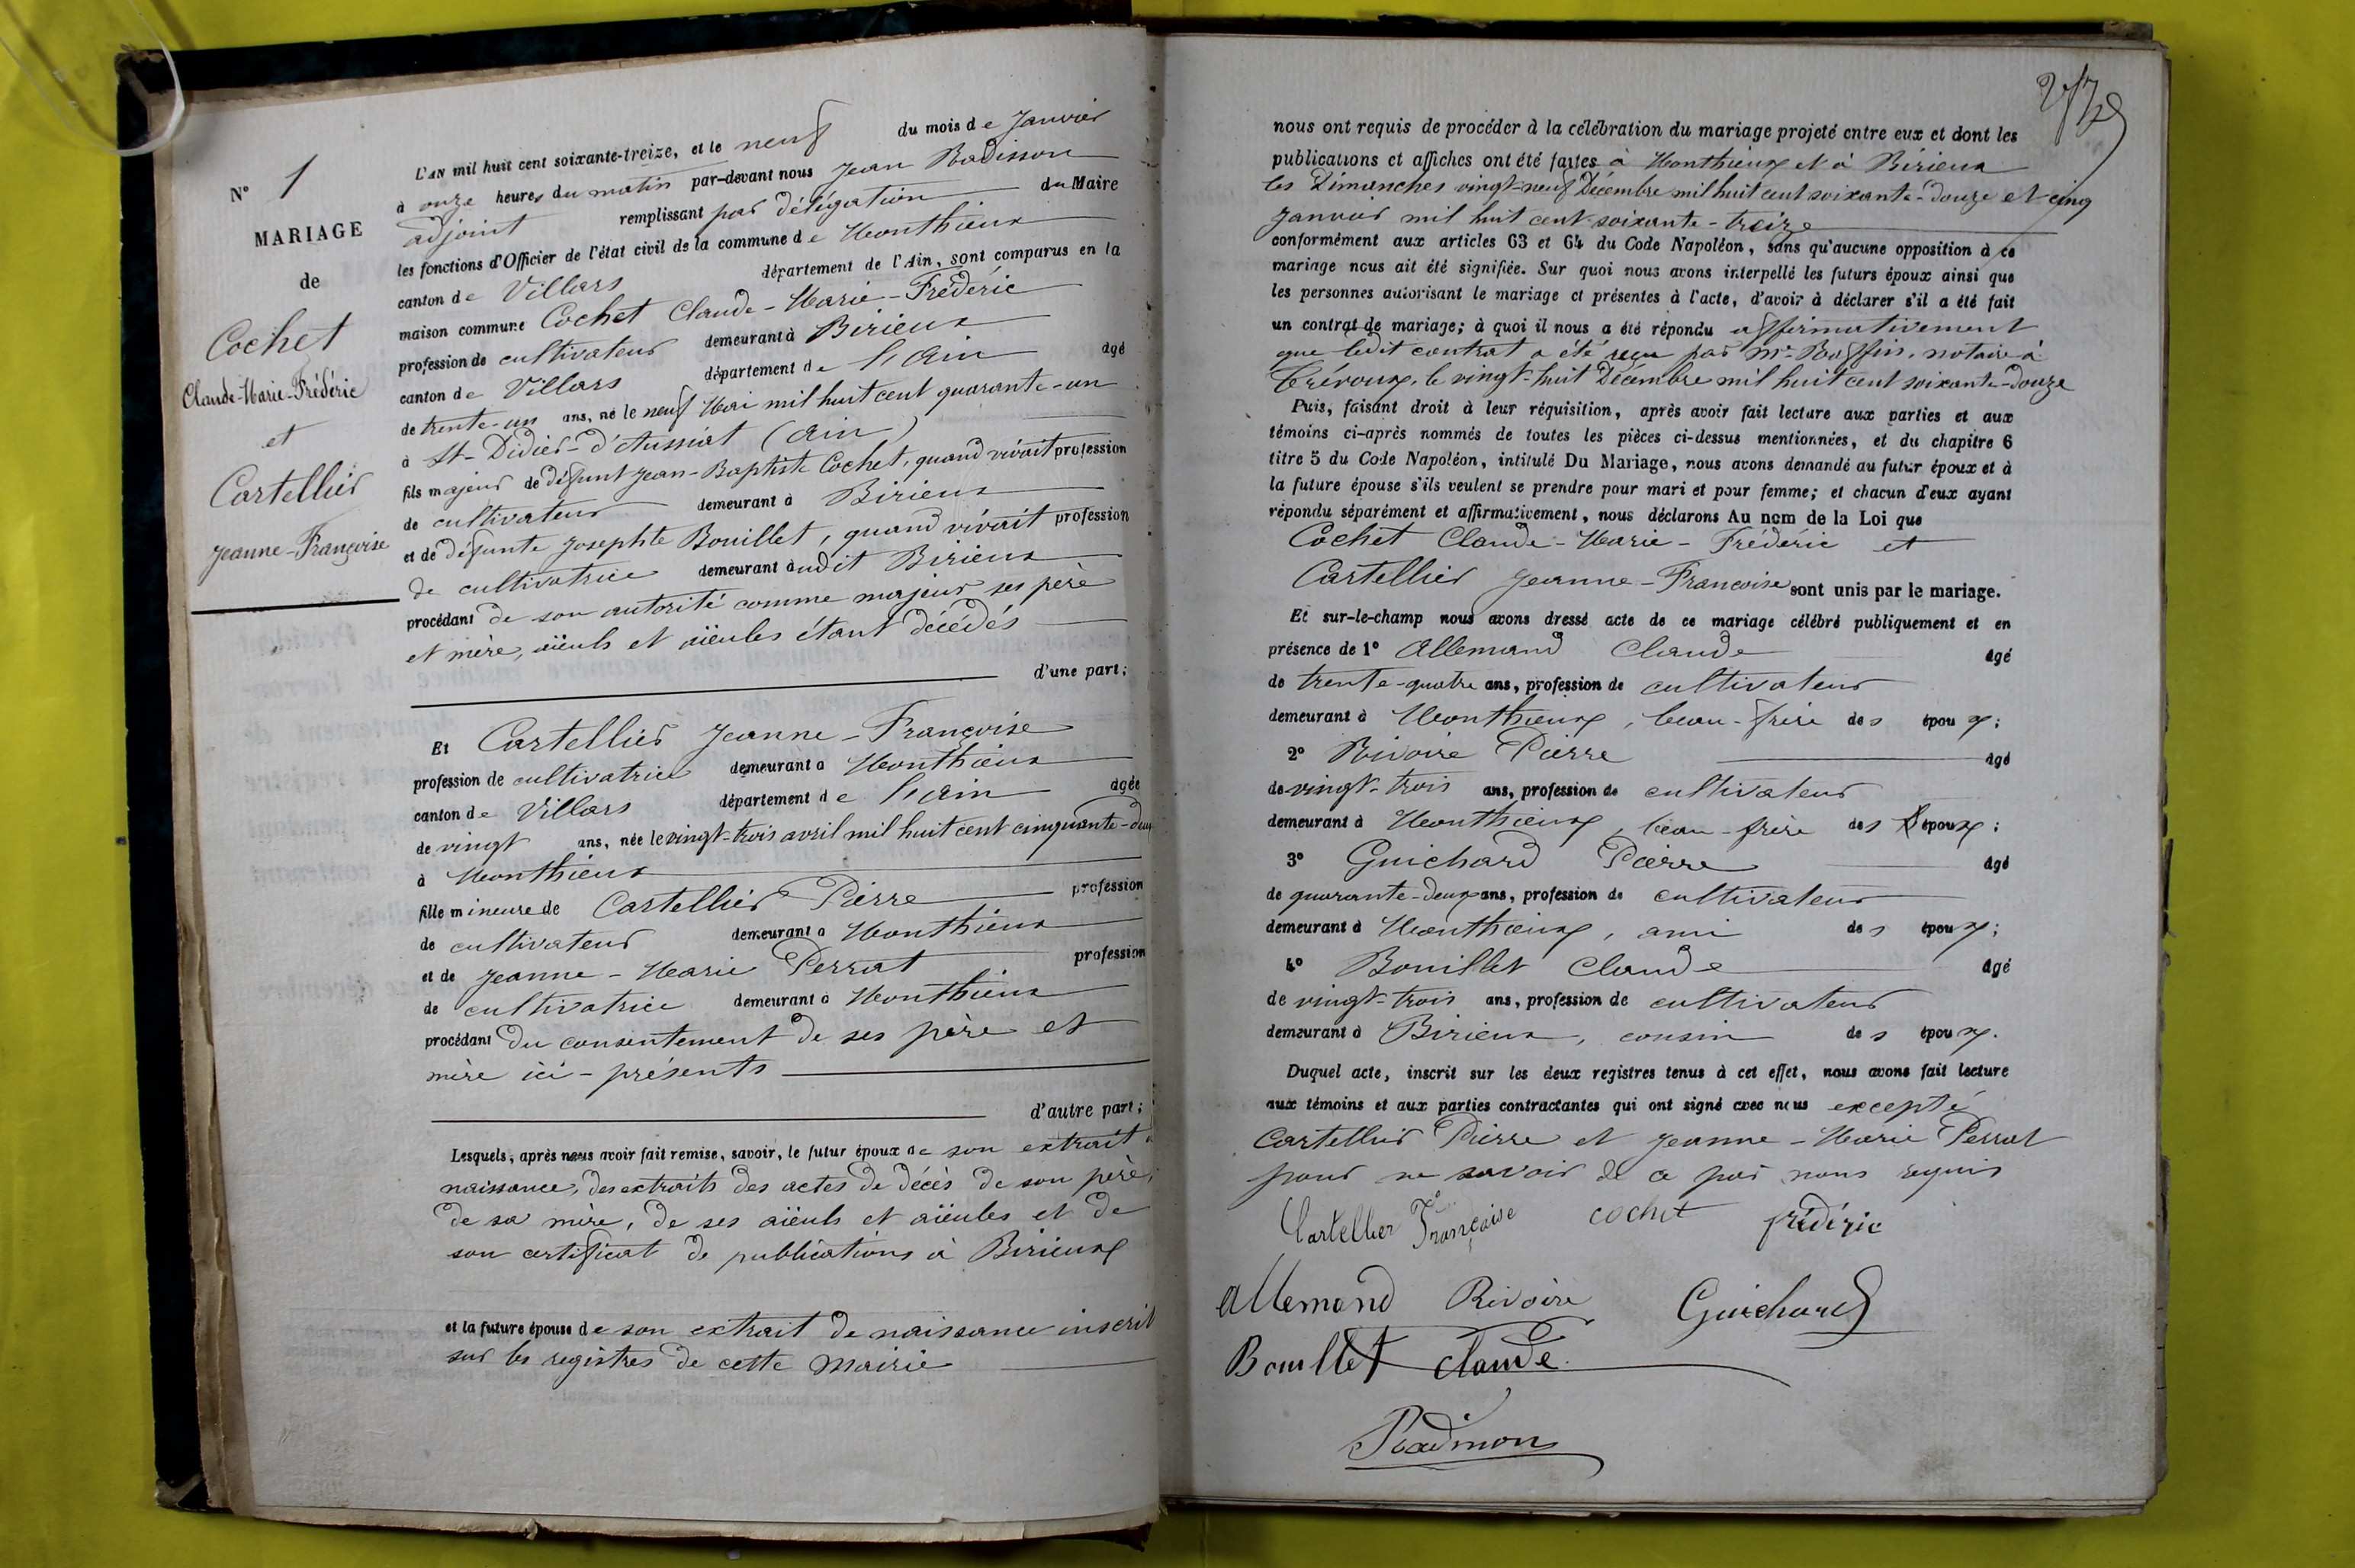 N° 1
MARIAGE
de
Cochet
Claude-Marie-Frédéric
et
Cartellier
Jeanne-Françoise
L'AN mil huit cent soixante-treize, et le neuf du mois de Janvier
à onze heures du matin par-devant nous Jean Radisson
adjoint remplissant par délégation du Maire
les fonctions d'Officier de l'état civil de la commune de Monthieux
canton de Villars département de l'Ain, sont comparus en la
maison commune Cochet Claude-Marie-Frédéric
profession de cultivateur demeurant à Birieux
canton de Villars département de l'Ain âgé
de trente-un ans, né le neuf Mai mil huit cent quarante-un
à St-Didier-d'Aussiat (Ain)
fils majeur de défunt Jean-Baptiste Cochet, quand vivait profession
de cultivateur demeurant à Birieux
et de défunte Josephte Bouillet, quand vivait profession
de cultivatrice demeurant audit Birieux
procédant de son autorité comme majeur ses père
et mère, aïeuls et aïeules étant décédés
d'une part;
Et Cartellier Jeanne-Françoise
profession de cultivatrice demeurant à Monthieux
canton de Villars département de l'Ain âgée
de vingt ans, née le vingt-trois avril mil huit cent cinquante-deux
à Monthieux
fille mineure de Cartellier Pierre profession
de cultivateur demeurant à Monthieux
et de Jeanne-Marie Perrat profession
de cultivatrice demeurant à Monthieux
procédant du consentement de ses père et
mère ici-présents
d'autre part;
Lesquels, après nous avoir fait remise, savoir, le futur époux de son extrait
naissance, des extraits des actes de décès de son père,
de sa mère, de ses aïeuls et aïeules et de
son certificat de publications à Birieux
et la future épouse de son extrait de naissance inscrit
sur les registres de cette Mairie
nous ont requis de procéder à la célébration du mariage projeté entre eux et dont les
publications et affiches ont été faites à Monthieux et à Birieux
les Dimanches vingt-neuf Décembre mil huit cent soixante-douze et cinq
Janvier mil huit cent soixante-treize
conformément aux articles 63 et 64 du Code Napoléon, sans qu'aucune opposition à ce
mariage nous ait été signifiée. Sur quoi nous avons interpellé les futurs époux ainsi que
les personnes autorisant le mariage et présentes à l'acte, d'avoir à déclarer s'il a été fait
un contrat de mariage; à quoi il nous a été répondu affirmativement
que ledit contrat a été reçu par Me notaire à
Trévoux, le vingt-huit Décembre mil huit cent soixante-douze
Puis, faisant droit à leur réquisition, après avoir fait lecture aux parties et aux
témoins ci-après nommés de toutes les pièces ci-dessus mentionnées, et du chapitre 6
titre 5 du Code Napoléon, intitulé Du Mariage, nous avons demandé au futur époux et à
la future épouse s'ils veulent se prendre pour mari et pour femme; et chacun d'eux ayant
répondu séparément et affirmativement, nous déclarons Au nom de la Loi que
Cochet Claude-Marie-Frédéric et
Cartellier Jeanne-Françoise sont unis par le mariage.
Et sur-le-champ nous avons dressé acte de ce mariage célébré publiquement et en
présence de 1° Allemand Claude âgé
de trente-quatre ans, profession de cultivateur
demeurant à Monthieux, beau-frère des époux;
2° Rivoire Pierre âgé
de vingt-trois ans, profession de cultivateur
demeurant à Monthieux, beau-frère des époux;
3° Guichard Pierre âgé
de quarante-deux ans, profession de cultivateur
demeurant à Monthieux, ami des époux;
4° Bouillet Claude âgé
de vingt-trois ans, profession de cultivateur
demeurant à Birieux, cousin des époux.
Duquel acte, inscrit sur les deux registres tenus à cet effet, nous avons fait lecture
aux témoins et aux parties contractantes qui ont signé avec nous excepté
Cartellier Pierre et Jeanne-Marie Perrat
pour ne savoir de ce par nous requis
Cartellier Françoise cochet frédéric
Allemand Rivoire Guichard
Bouillet claude
Radisson